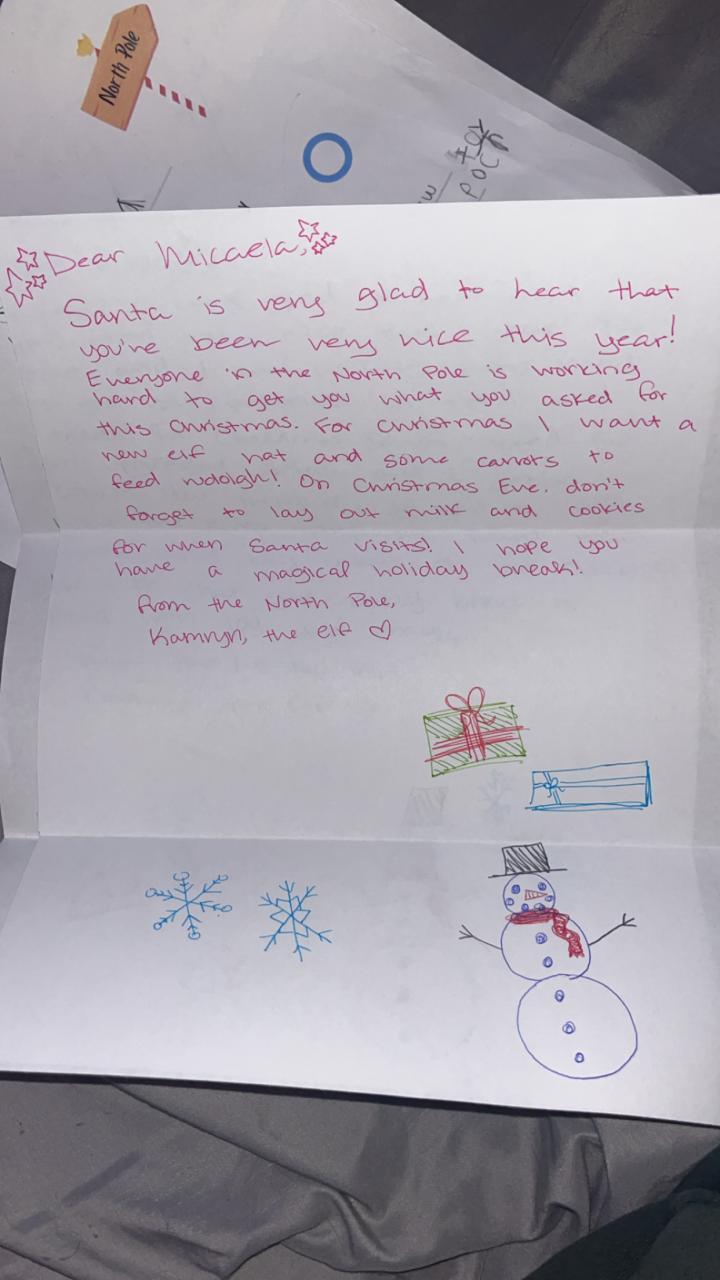 North Pole
JOY
POC
W
Dear Micaela,
Santa is very glad to hear that
you've been very nice this year!
Everyone in the North Pole is working
hard to get you what you asked for
this Christmas. For Christmas I want a
new elf hat and some carrots to
feed rudolgh! On Christmas Eve, don't
forget to lay out milk and cookies
for when Santa visits! I hope you
have a magical holiday break!
From the North Pole,
Kamryn, the elf